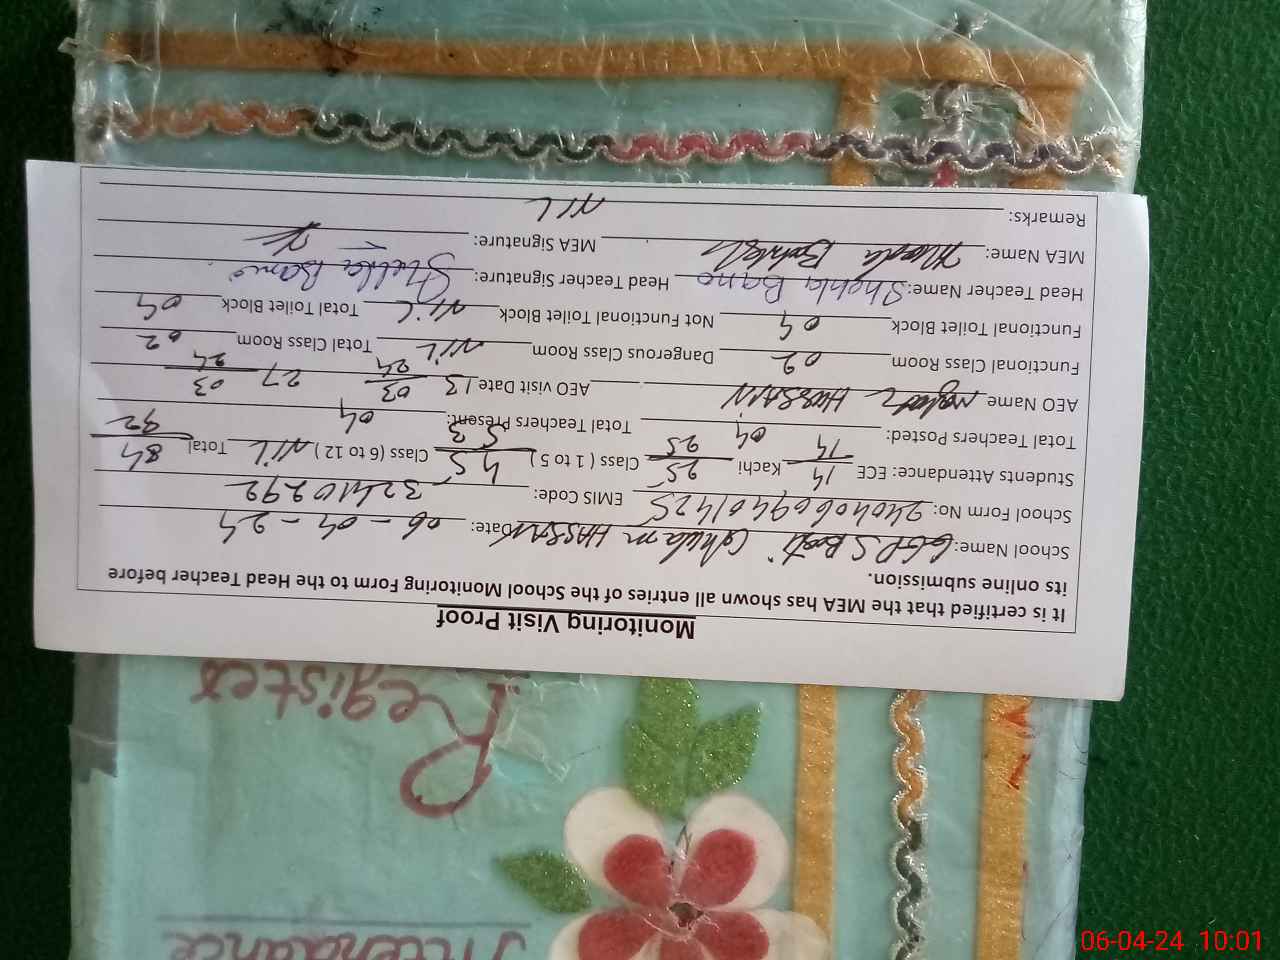 Monitoring Visit Proof
It is certified that the MEA has shown all entries of the School Monitoring to Form to the Head Teacher before
its online submission.
School Name: GGPS Basti Ghulam HASSAN Date: 06-04-24
School Form No: EMIS Code: 32410292
Students Attendance: ECE 14/14 Kachi 25/25 Class ( 1 to 5 ) 45/53 Class (6 to 12 ) NIL Total 84/92
Total Teachers Posted: 04 Total Teachers Present: 04
AEO Name HASSAN AEO visit Date 13 03/24 27 03/24
Functional Class Room 02 Dangerous Class Room NIL Total Class Room 02
Functional Toilet Block 04 Not Functional Toilet Block NIL Total Toilet Block 04
Head Teacher Name: Shehla Bano Head Teacher Signature: Shehla Bano
MEA Name: MEA Signature:
Remarks: NIL
Register
Attendance
06-04-24 10:01